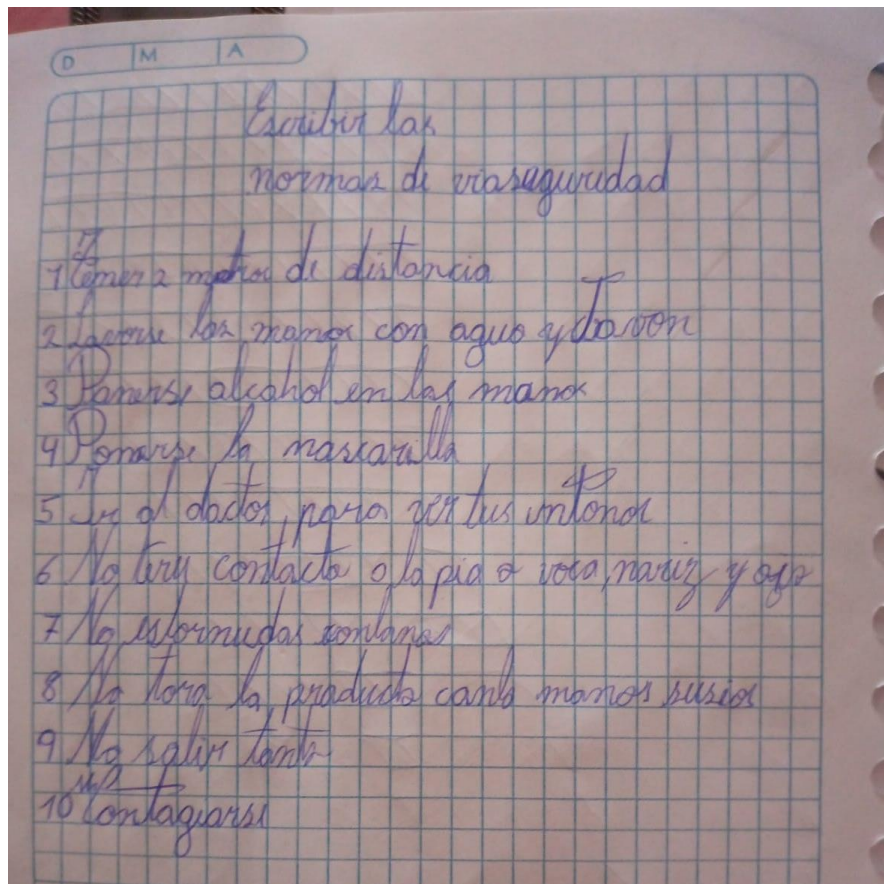 D M A
Escribir las
normas de viaseguridad
1 Tener 2 metros de distancia
2 Lavarse las manos con agua y Javon
3 Ponerse alcohol en las manos
4 Ponerse la mascarilla
5 Ir al doctor, para ver tus sintonas
6 No tery contacto o la pia o voca, nariz y ojo
7 No estornudas
8 No la producto manos susias
9 No salir tanto
10 No Contagiarse